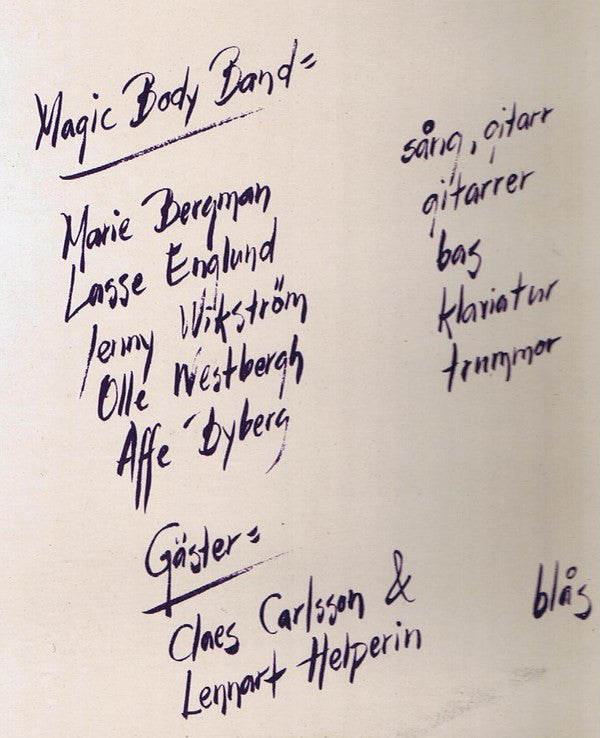 Magic Body Band=
Marie Bergman sång, gitarr
Lasse Englund gitarrer
Jenny Wikström bas
Olle Westbergh klaviatur
Affe Byberg trummor
Gäster=
Claes Carlsson &
Lennart Helperin blås